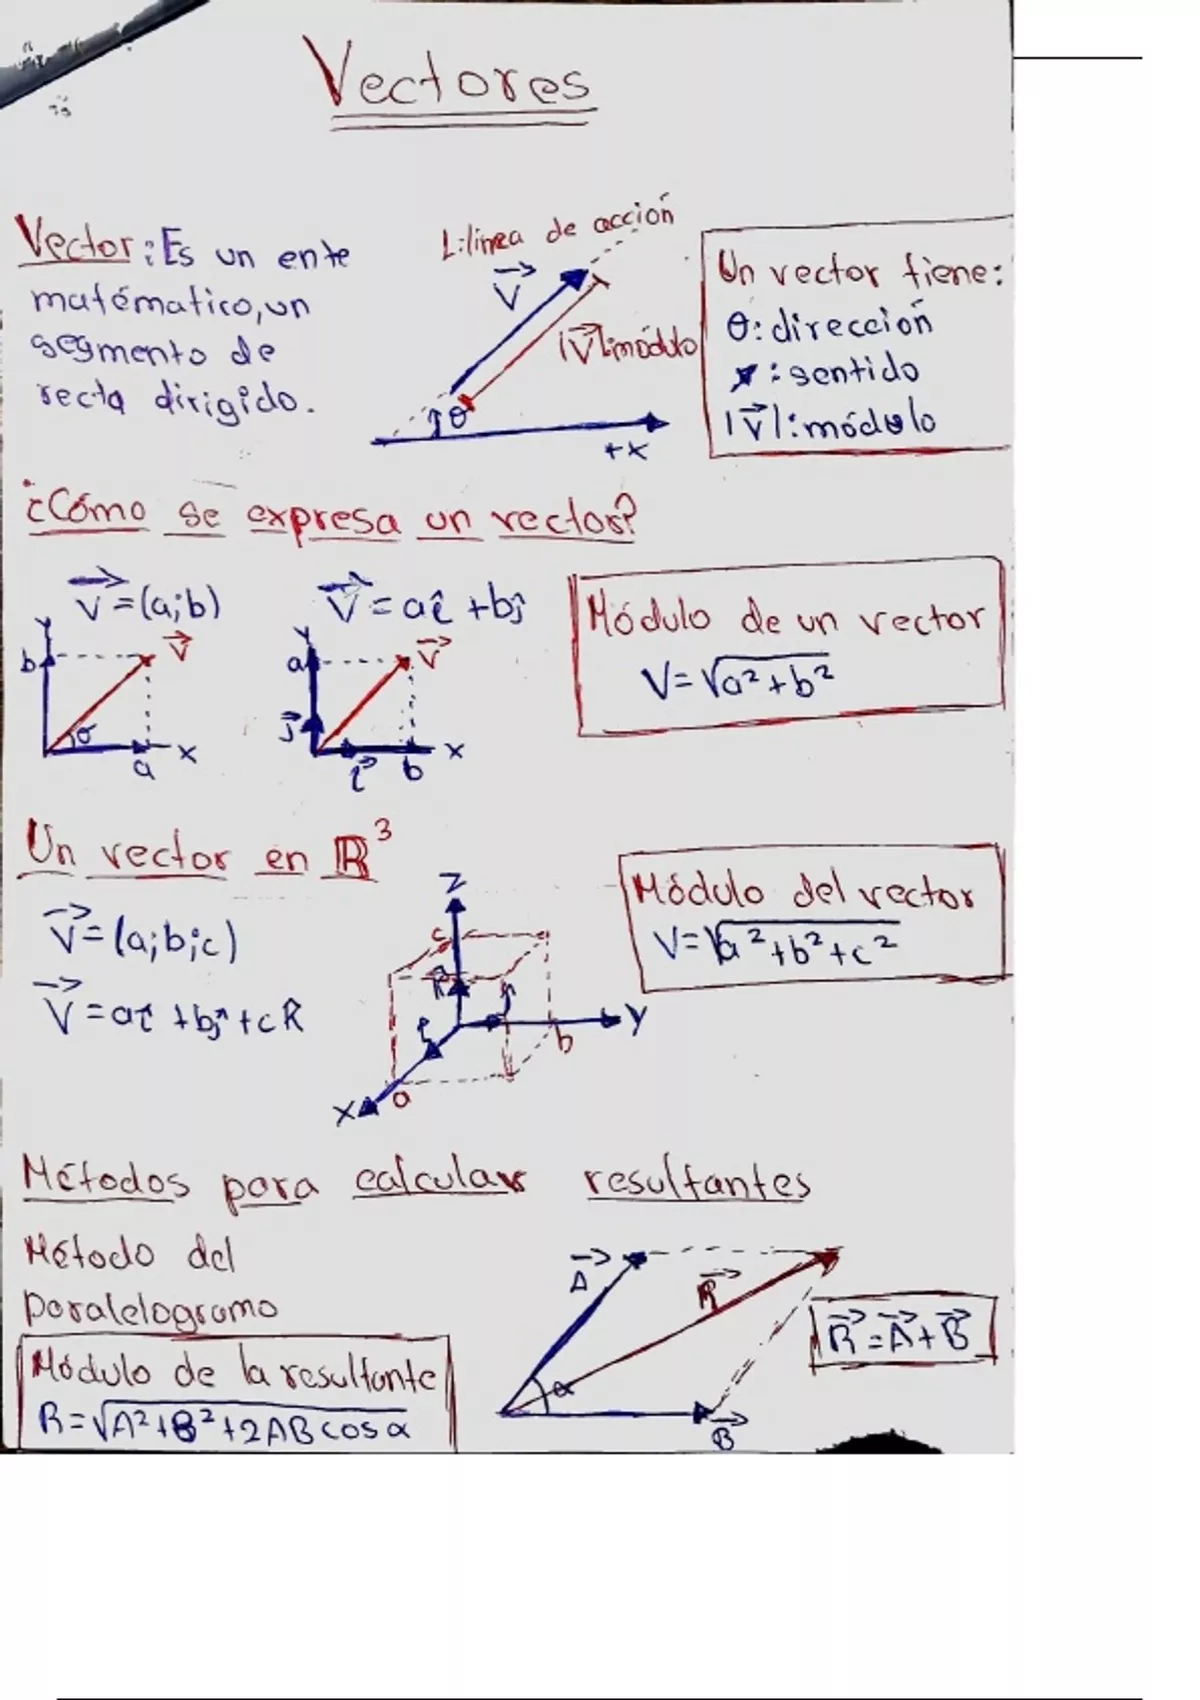 Vectores
Vector: Es un ente
matématico, un
segmento de
recta dirigido.
L: línea de acción
V
|V|: módulo
θ
+x
Un vector tiene:
θ: dirección
: sentido
|V|: módulo
¿Cómo se expresa un vector?
V=(a;b)
y
b
V
θ
a
x
V=aî+bĵ
y
a
V
j
i
b
x
Módulo de un vector
V=√a²+b²
Un vector en ℝ³
V=(a;b;c)
V=aî+bĵ+ck̂
z
c
k̂
ĵ
î
b
y
a
x
Módulo del vector
V=√a²+b²+c²
Métodos para calcular resultantes
Método del
Paralelogramo
Módulo de la resultante
R=√A²+B²+2ABcosα
A
R
α
B
R=A+B